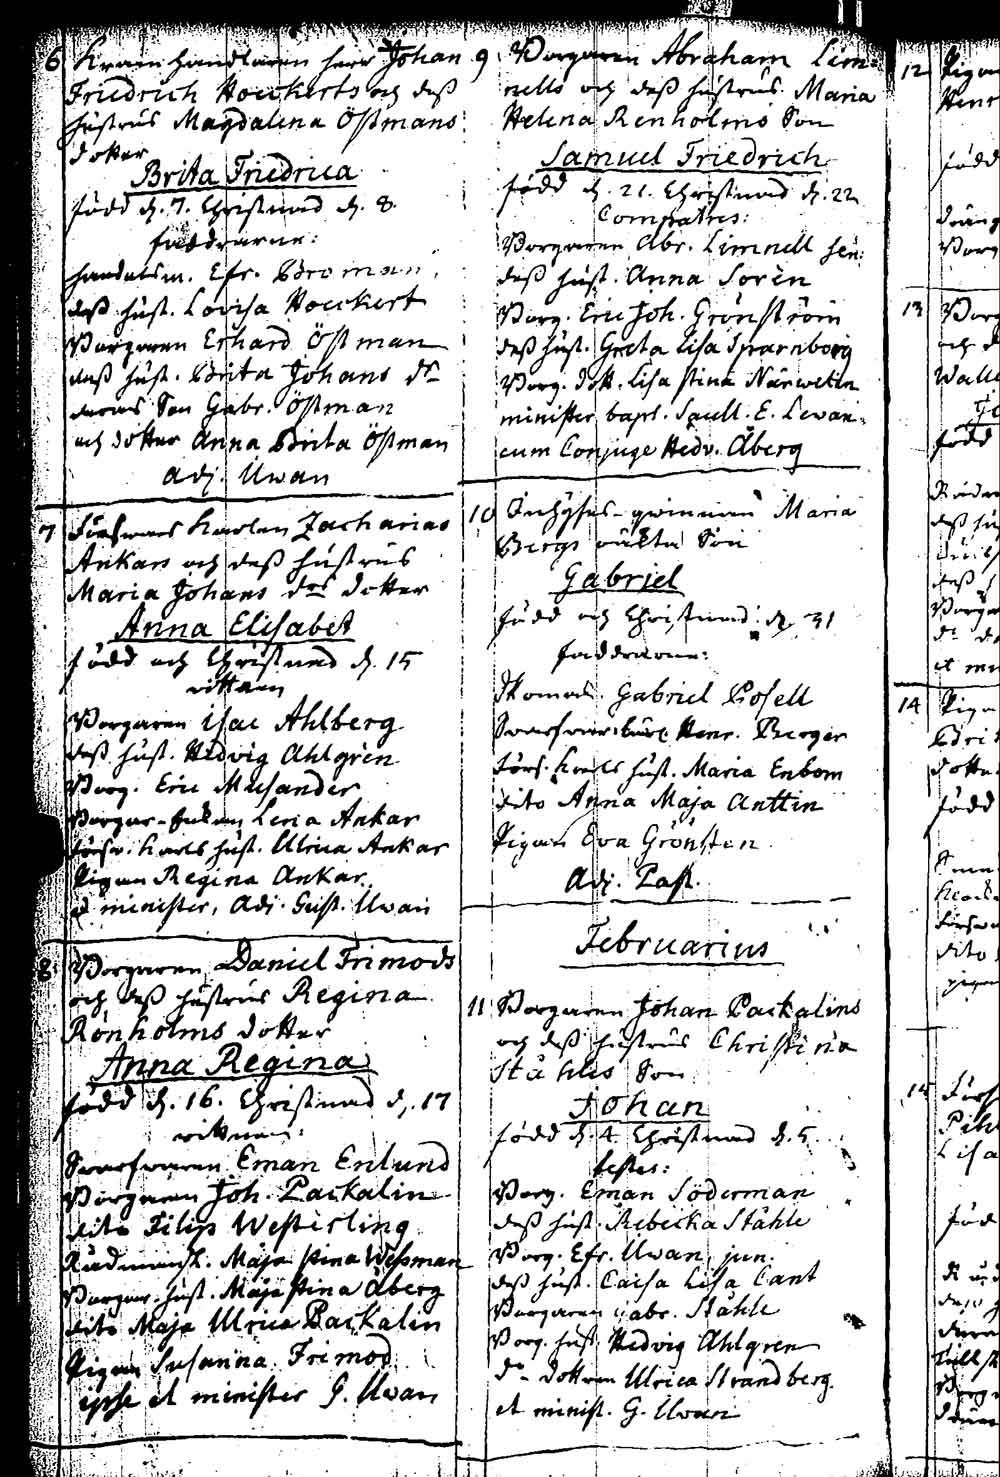 6 Kramhandlaren herr Johan
Friedrich Hoeckerts och deß
hustrus Magdalena Östmans
dotter
Brita Friedrica
född d. 7. Christnad d. 8.
faddrarne:
handelsm. Efr. Broman
deß hust. Lovisa Hoeckert
Borgaren Erhard Östman
deß hust. Brita Johans dr
deras Son Gabr. Östman
och dotter Anna Brita Östman
adj. Uwan
7 Karlen Zacharias
Ankars och deß hustrus
Maria Johans drs dotter
Anna Elisabet
född och Christnad d. 15
vittnen
Borgaren Isac Ahlberg
deß hust. Hedvig Ahlgren
Borg. Eric Musander
Borgar-Enkan Lena Ankar
Förs. Karls hust. Ulrica Ankar
Pigan Regina Ankar
et minister, Adj. Gust. Uwan
8 Borgaren Daniel Frimods
och deß hustrus Regina
Rönholms dotter
Anna Regina
född d. 16. Christnad d. 17
vittnen:
Swarfwaren Eman Enlund
Borgaren Joh. Packalin
dito Filip Westerling
Rådman H. Maja Stina Weßman
Borgar. hust. Maja Stina Åberg
dito Maja Ulrica Packalin
Pigan Susanna Frimod
ipse et minister G. Uwan
9 Borgaren Abraham Lim-
nells och deß hustrus Maria
Helena Renholms Son
Samuel Friedrich
född d. 21. Christnad d. 22
Compatres:
Borgaren Abr. Limnell sen.
deß hust. Anna Soren
Borg. Eric Joh. Grönström
deß hust. Greta Lisa Sparnborg
Borg. dott. Lisa Stina Närwelin
minister bapt. Saull. E. Lewan-
cum Conjuge Hedv. Åberg
10 Inhyses-qwinnan Maria
Bergs oäkta Son
Gabriel
född och Christnad d. 31
faddrarne:
Skomak. Gabriel Rosell
Henr. Berger
Förs. Karls hust. Maria Enbom
dito Anna Maja Anttin
Pigan Eva Grönsten
Adj. Past.
Februarius
11 Borgaren Johan Packalins
och deß hustrus Christina
Ståhles Son
Johan
född d. 4. Christnad d. 5.
testes:
Borg. Eman Söderman
deß hust. Rebecka Ståhle
Borg. Efr. Uwan jun.
deß hust. Caisa Lisa Cant
Borgaren Gabr. Ståhle
Borg. hust. Hedvig Ahlgren
do dottren Ulrica Strandberg
et minist. G. Uwan
12 Pigan
Henr
född
Borg
13 Borg
och d
Walle
född
deß hu
deß h
Borga
et min
14 Piga
Brit
dotte
född
dito
15 Förs
Pihl
Lisa
född
Borg